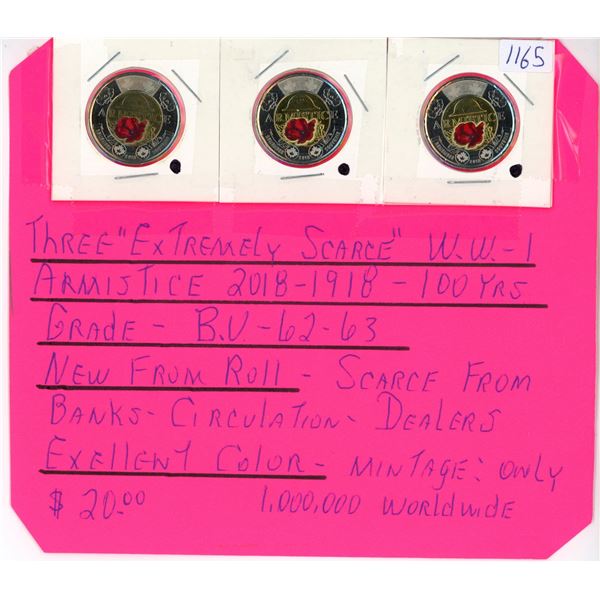 1165
ARMISTICE ARMISTICE ARMISTICE
THREE "EXTREMELY SCARCE" W.W.-1
ARMISTICE 2018-1918-100 YRS
GRADE - B.U-62-63
NEW FROM ROLL - SCARCE FROM
BANKS - CIRCULATION - DEALERS
EXELLENT COLOR - MINTAGE: ONLY
$ 20.00 1,000,000 WORLDWIDE